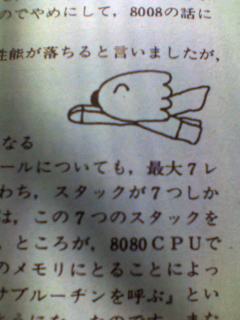 のでやめにして，8008の話に
性能が落ちると言いましたが，
なる
ールについても，最大7レ
わち，スタックが7つしか
は，この7つのスタックを
，ところが，8080CPUで
のメモリにとることによっ
サブルーチンを呼ぶ』とい